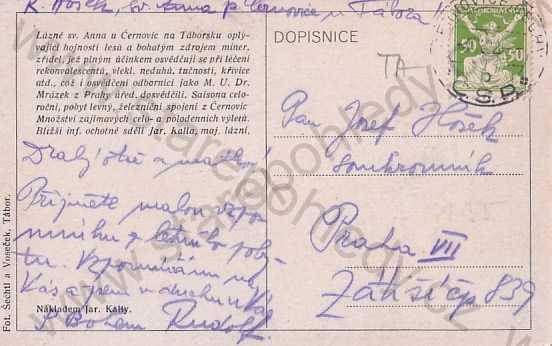 K. Hošek, sv. Anna p. Černovice u Tábora
Lázně sv. Anna u Černovic na Táborsku oplý-
vající hojností lesů a bohatým zdrojem miner.
zřídel, jež plným účinkem osvědčují se při léčení
rekonvalescentů, vlekl. neduhů, tučnosti, křivice
atd., což i osvědčení odborníci jako M. U. Dr.
Mrázek z Prahy úřed. dosvědčili. Saisona celo-
roční, pobyt levný, železniční spojení z Černovic
Množství zajímavých celo- a polodenních výletů.
Bližší inf. ochotně sdělí Jar. Kalla, maj. lázní.
DOPISNICE
50 50
Č.S.P.
TA
Drahý otče a matko!
Přijměte malou vzpo
mínku z letního poby-
tu. Vzpomínám na
Vás a jsem v duchu u Vás
S Bohem Rudolf
Pan Josef Hošek
soukromník
Praha VII
Zátiší čp. 839
Nákladem Jar. Kally.
Fot. Šechtl a Voseček, Tábor.
www.staropohledy.cz